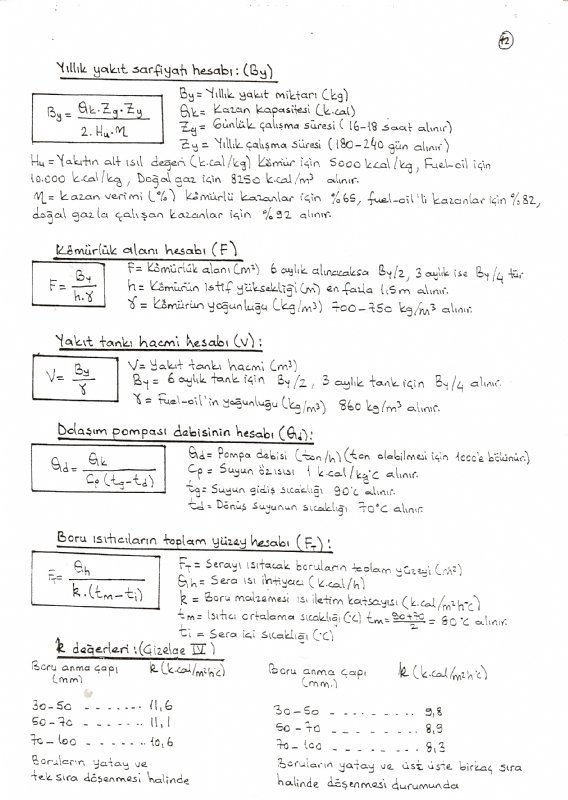 42
Yıllık yakıt sarfiyatı hesabı: (By)
By = Qk.Zg.Zy / 2.Hu.η
By = Yıllık yakıt miktarı (kg)
Qk = Kazan kapasitesi (k.cal)
Zg = Günlük çalışma süresi (16-18 saat alınır)
Zy = Yıllık çalışma süresi (180-240 gün alınır)
Hu = Yakıtın alt ısıl değeri (k.cal/kg) Kömür için 5000 kcal/kg, Fuel-oil için
10.000 k.cal/kg, Doğal gaz için 8250 k.cal/m³ alınır.
η = Kazan verimi (%) kömürlü kazanlar için %65, fuel-oil'li kazanlar için %82,
doğal gazla çalışan kazanlar için %92 alınır.
Kömürlük alanı hesabı (F)
F = By / h.γ
F = Kömürlük alanı (m²) 6 aylık alınacaksa By/2, 3 aylık ise By/4 tür
h = Kömürün istif yüksekliği (m) en fazla 1,5m alınır.
γ = Kömürün yoğunluğu (kg/m³) 700-750 kg/m³ alınır.
Yakıt tankı hacmi hesabı (V):
V = By / γ
V = Yakıt tankı hacmi (m³)
By = 6 aylık tank için By/2, 3 aylık tank için By/4 alınır.
γ = Fuel-oil'in yoğunluğu (kg/m³) 860 kg/m³ alınır.
Dolaşım pompası debisinin hesabı (Qd):
Qd = Qk / Cp (tg-td)
Qd = Pompa debisi (ton/h) (ton olabilmesi için 1000'e bölünür.)
Cp = Suyun özısısı 1 k.cal/kg°C alınır.
tg = Suyun gidiş sıcaklığı 90°C alınır.
td = Dönüş suyunun sıcaklığı 70°C alınır.
Boru ısıtıcıların toplam yüzey hesabı (FT):
FT = Qh / k.(tm-ti)
FT = Serayı ısıtacak boruların toplam yüzeyi (m²)
Qh = Sera ısı ihtiyacı (k.cal/h)
k = Boru malzemesi ısı iletim katsayısı (k.cal/m²h°C)
tm = Isıtıcı ortalama sıcaklığı (°C) tm = 90+70 / 2 = 80°C alınır.
ti = Sera içi sıcaklığı (°C)
k değerleri: (Çizelge IV)
Boru anma çapı k (k.cal/m²h°C)
(mm)
30-50 ------- 11,6
50-70 ------- 11,1
70-100 ------ 10,6
Boruların yatay ve
tek sıra döşenmesi halinde
Boru anma çapı k (k.cal/m²h°C)
(mm.)
30-50 -------- 9,8
50-70 -------- 8,9
70-100 -------- 8,3
Boruların yatay ve üst üste birkaç sıra
halinde döşenmesi durumunda